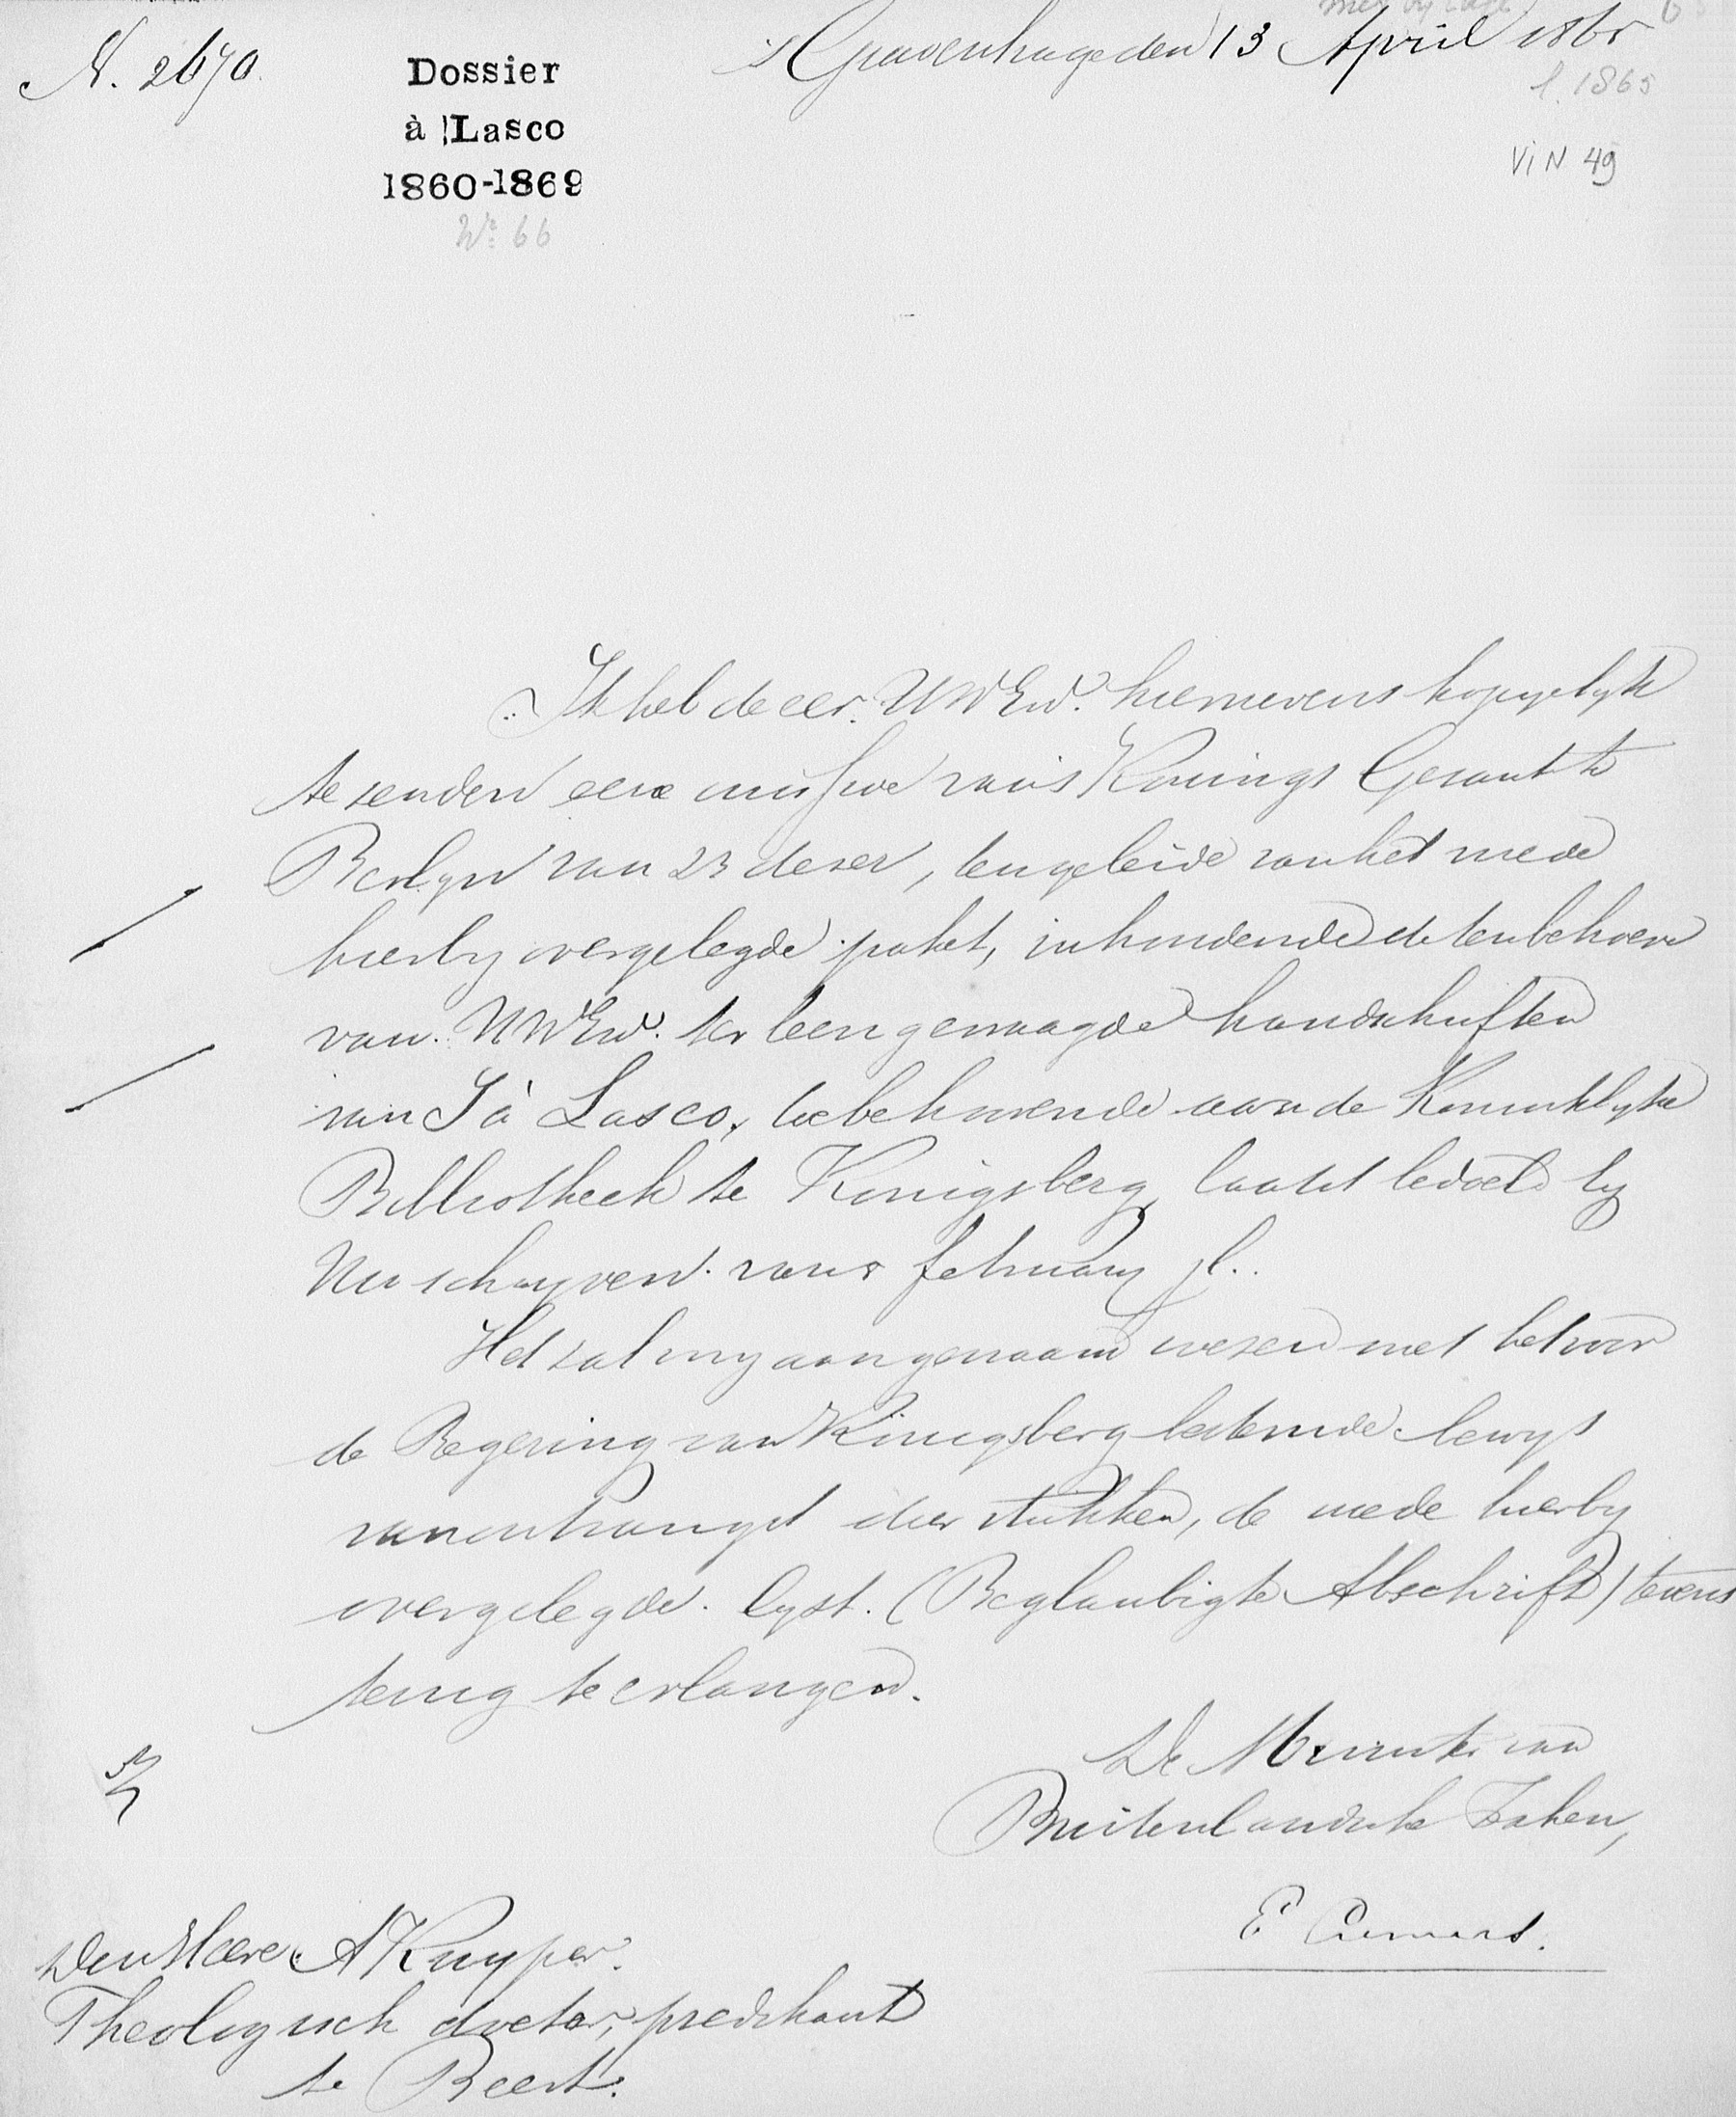 N. 2670.
Dossier
à Lasco
1860-1869
No 66
's Gravenhage den 13 April 1865
1865
VI N 49
Ik heb de eer UWEw. hiernevens kopyelyk
te zenden eene missive van 's Konings Gezant te
Berlyn van 23 dezer, ten geleide van het mede
hierby overgelegde paket, inhoudende de ten behoeve
van UWEw. ter leen gevraagde handschriften
van J à Lasco, toebehoorende aan de Koninklyke
Bibliotheek te Konigsberg, laatst bedoeld by
Uw schryven van february jl.
Het zal my aangenaam wezen met het voor
de Regering van Königsberg bestemde bewys
van ontvangst dier stukken, de mede hierby
overgelegde lyst. (Beglaubigte Abschrift) tevens
terug te erlangen.
De Minister van
Buitenlandsche Zaken,
E Cremers.
Den Heere A Kuyper.
Theologisch doctor, predikant
te Beest.